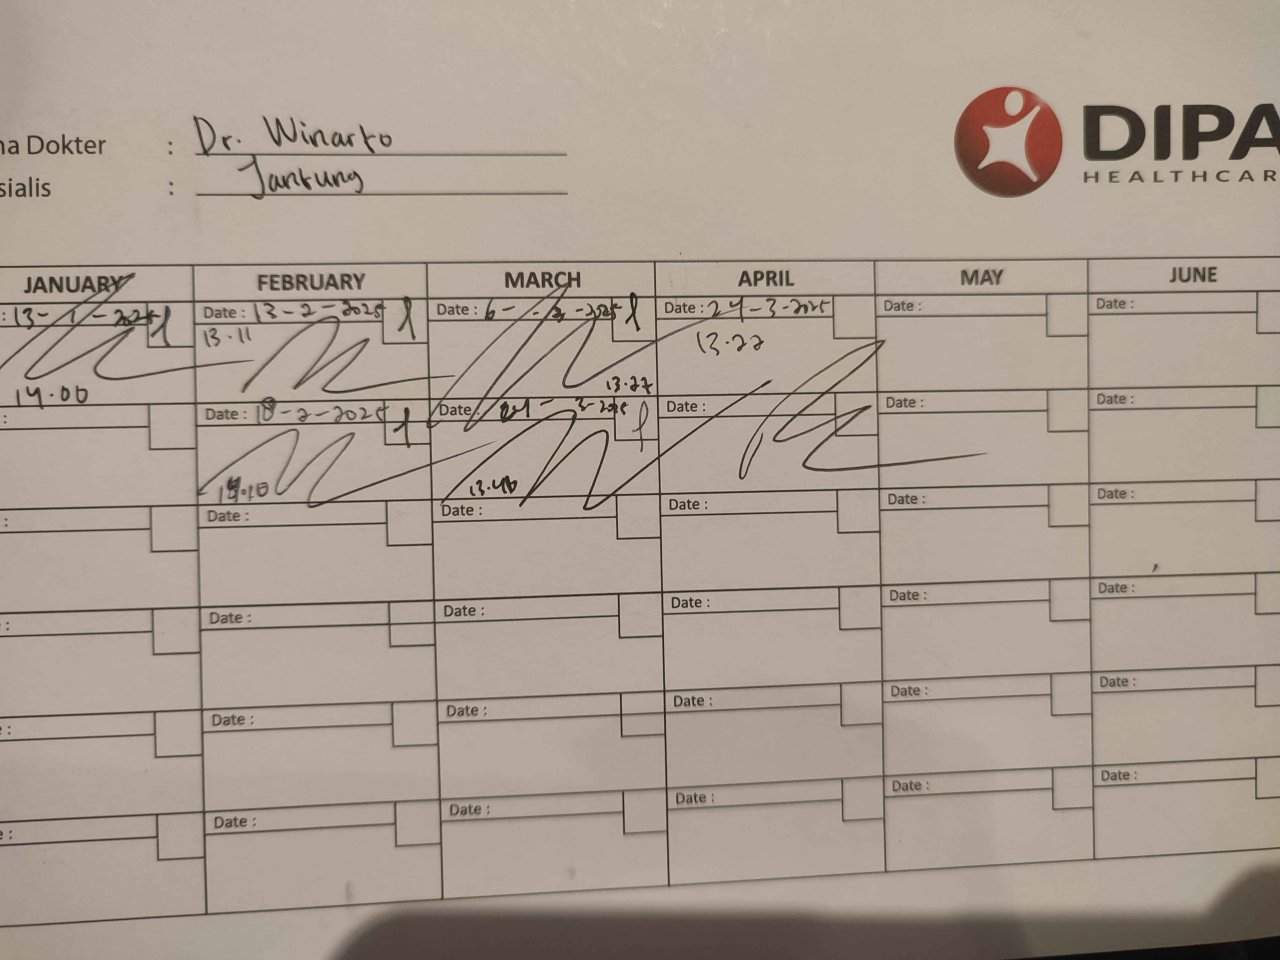 na Dokter : Dr. Winarto
sialis : Jantung
DIPA
HEALTHCAR
JANUARY FEBRUARY MARCH APRIL MAY JUNE
: 13-1-2025 Date : 13-2-2025 Date : 6- -2025 Date : 24-3-2025 Date : Date :
14.00 13.11 13.27 13.22
: Date : 18-2-2025 Date : 24-3-2025 Date : Date : Date :
14.10 13.46
: Date : Date : Date : Date : Date :
: Date : Date : Date : Date : Date :
: Date : Date : Date : Date : Date :
: Date : Date : Date : Date : Date :